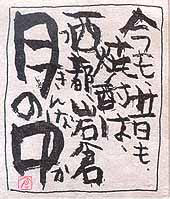 今も昔も、
焼酎は、
西都岩倉
つきんなか
月の中